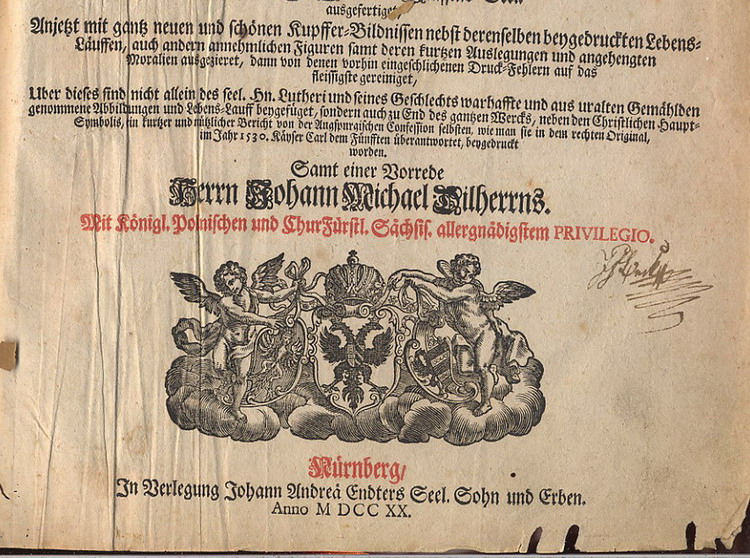 ausgefertiget
Anjetzt mit gantz neuen und schönen Kupffer-Bildnissen nebst derenselben beygedruckten Lebens-
Läuffen, auch andern annehmlichen Figuren samt deren kurtzen Auslegungen und angehengten
Moralien ausgezieret, dann von denen vorhin eingeschlichenen Druck-Fehlern auf das
fleissigste gereiniget,
Uber dieses sind nicht allein des seel. Hn. Lutheri und seines Geschlechts warhaffte und aus uralten Gemählden
genommene Abbildungen und Lebens-Lauff beygefüget, sondern auch zu End des gantzen Wercks, neben den Christlichen Haupt-
Symbolis, ein kurtzer und nützlicher Bericht von der Augspurgischen Confession selbsten, wie man sie in dem rechten Original,
im Jahr 1530. Käyser Carl dem Fünfften überantwortet, beygedruckt
worden.
Samt einer Vorrede
Herrn Johann Michael Dilherrns.
Mit Königl. Polnischen und ChurFürstl. Sächsis. allergnädigstem PRIVILEGIO.
Nürnberg/
In Verlegung Johann Andreä Endters Seel. Sohn und Erben.
Anno M DCC XX.